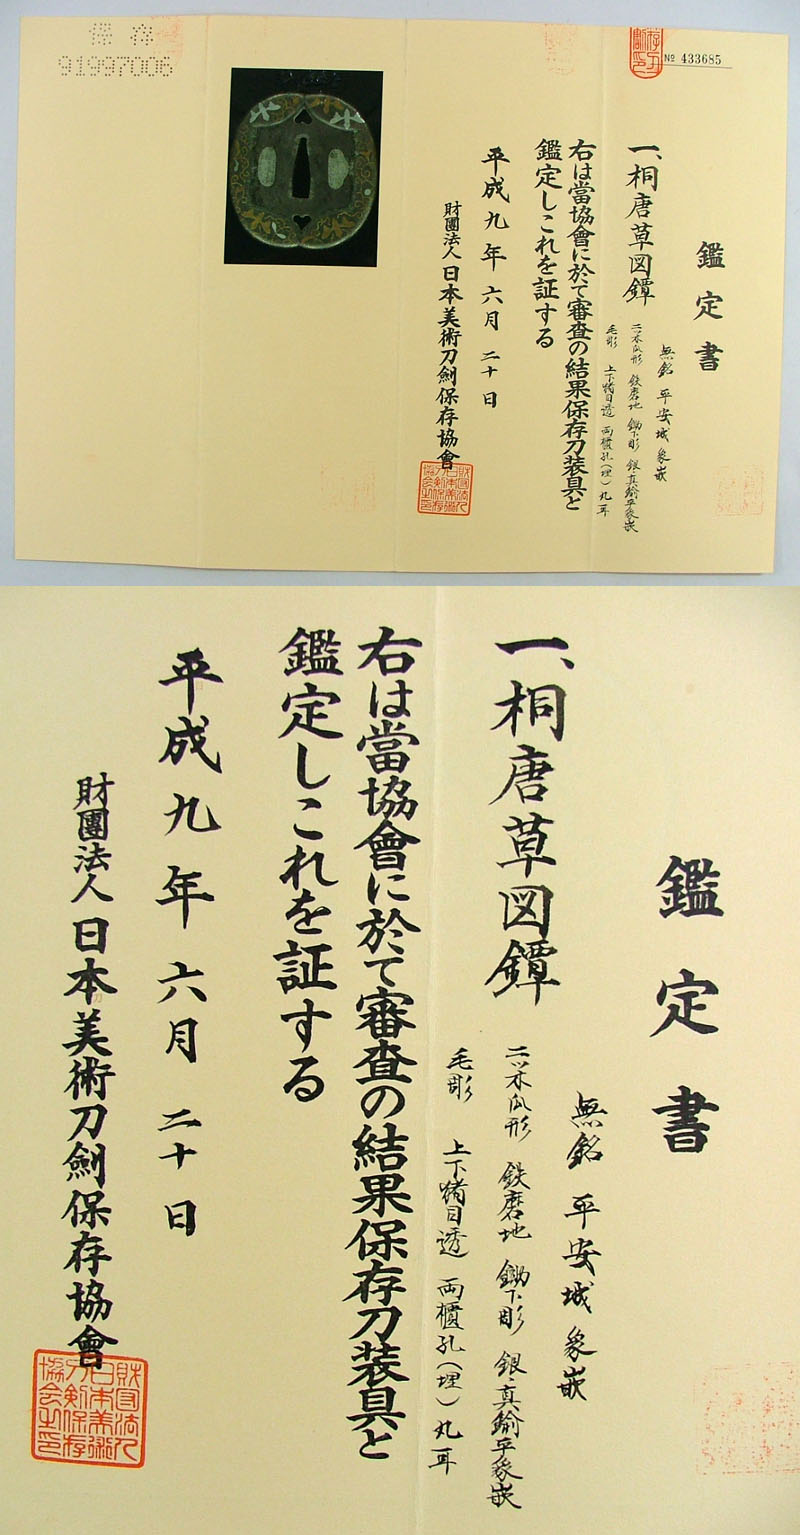 保存
91997006
№ 433685
鑑定書
一、桐唐草図鐔
無銘 平安城象嵌
二ツ木瓜形 鉄磨地 鋤下彫 銀・真鍮平象嵌
毛彫 上下猪目透 両櫃孔(埋) 丸耳
右は當協會に於て審査の結果保存刀装具と
鑑定しこれを証する
平成九年六月二十日
財團法人日本美術刀劍保存協會
財団法人
日本美術
刀剣保存
協会之印
鑑定書
一、桐唐草図鐔
無銘 平安城象嵌
二ツ木瓜形 鉄磨地 鋤下彫 銀・真鍮平象嵌
毛彫 上下猪目透 両櫃孔(埋) 丸耳
右は當協會に於て審査の結果保存刀装具と
鑑定しこれを証する
平成九年六月二十日
財團法人日本美術刀劍保存協會
財団法人
日本美術
刀剣保存
協会之印